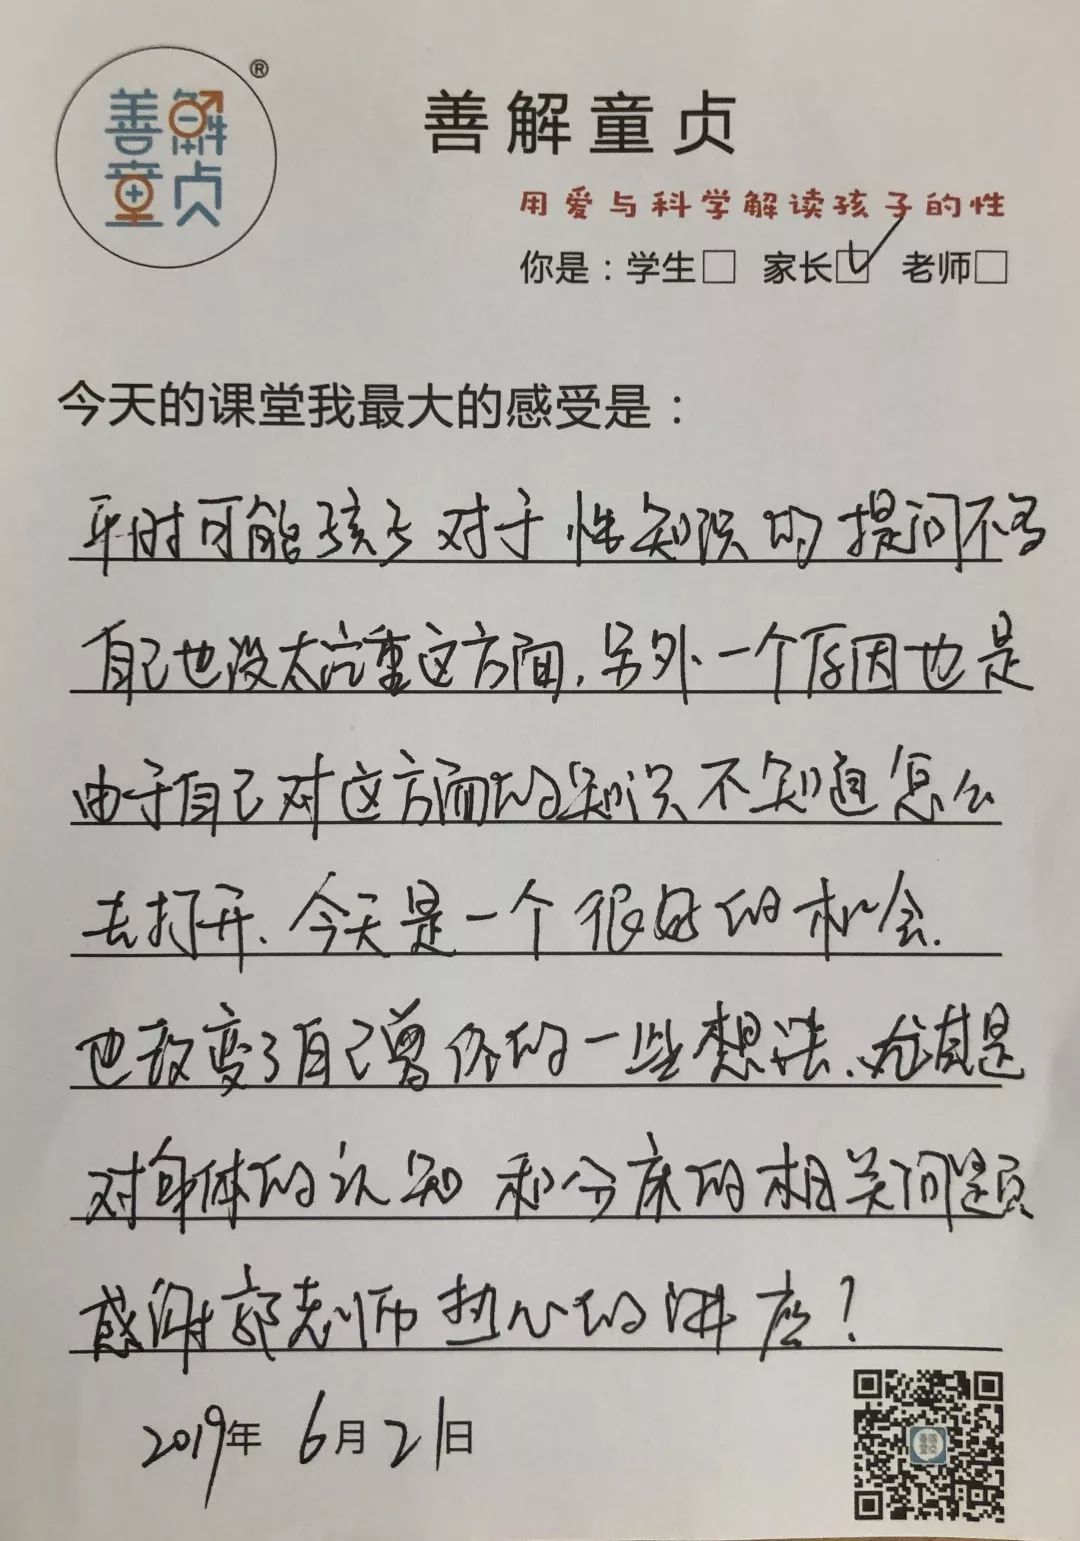 善解
童贞
®
善解童贞
用爱与科学解读孩子的性
你是：学生□ 家长☑ 老师□
今天的课堂我最大的感受是：
平时可能孩子对于性知识的提问不多
自己也没太注重这方面，另外一个原因也是
由于自己对这方面的知识不知道怎么
去打开、今天是一个很好的机会.
也改变了自己曾经的一些想法、尤其是
对身体的认知和分床的相关问题
感谢郭老师热心的讲座！
2019年 6月21日